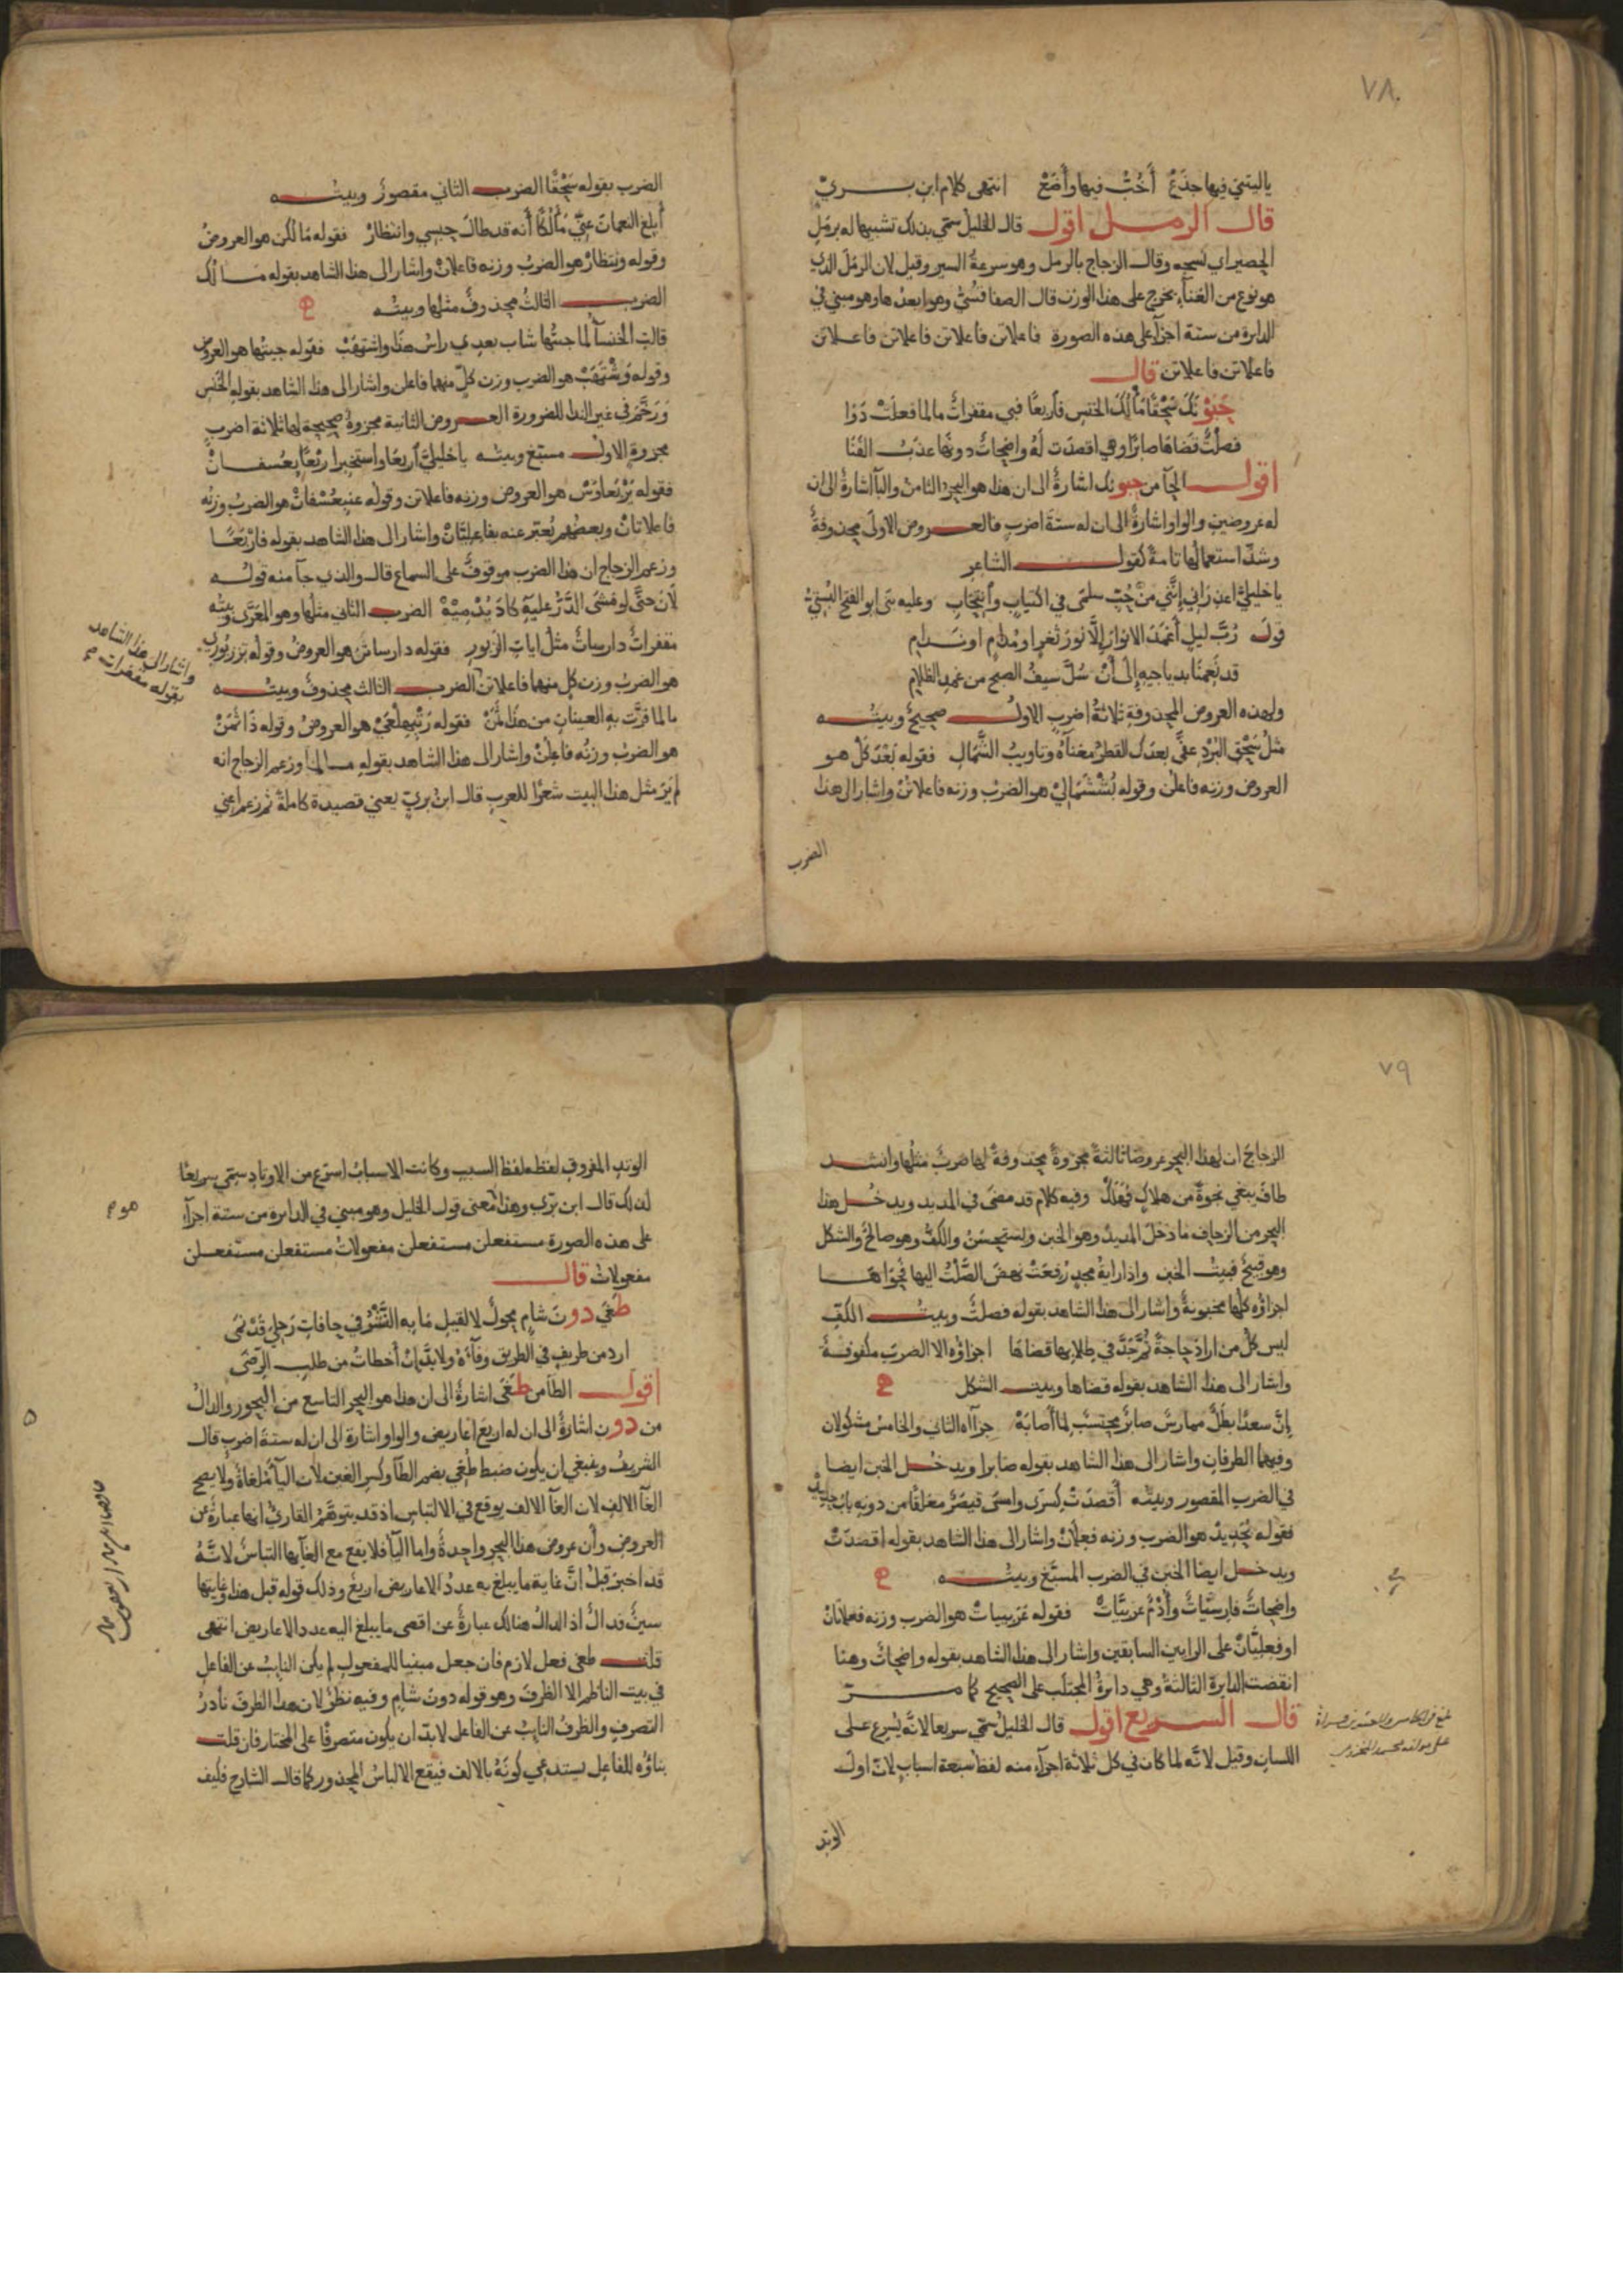 ٧٨
ياليتني فيها جذع أخب فيها وأضع انتهى كلام ابن بري
قال الرمل اقول قال الخليل سمي بذلك تشبيها له برمل
الحصير اي نسجه وقال الزجاج بالرمل وهو سرعة السير وقيل لان الرمل الذي
هو نوع من الغناء يخرج على هذا الوزن قال الصفاقسي وهو ابعدها وهو مبني في
الدايرة من ستة اجزآ على هذه الصورة فاعلاتن فاعلاتن فاعلاتن فاعلاتن
فاعلاتن فاعلاتن قال
حبو نك سحقا مألك الخنس فاربعا فبي مقفرات مالما فعلت دوا
فصلت قضاها صابرا وهي اقصدت له واضحات دونها عذب القنا
اقول الحآ من حبونك اشارة الى ان هذا هو البحر الثامن والبآ اشارة الى ان
له عروضين والواو اشارة الى ان له ستة اضرب فالعروض الاولى محذوفة
وشذ استعمالها تامة كقول الشاعر
يا خليلي اعذراني إنني من حب سلمى في اكتياب وأنتحاب وعليه بنى ابو الفتح البستي
قوله رب ليل أغمد الانوار إلا نور ثغر او مدام او ندام
قد نعمنا بدياجيه إلى أن سل سيف الصبح من غمد الظلام
ولهذه العروض المحذوفة ثلاثة اضرب الاول صحيح وبيته
مثل سحق البرد عفى بعدك القطر مغناه وتاويب الشمال فقوله بعدكل هو
العروض وزنه فاعلن وقوله بششمالي هو الضرب وزنه فاعلاتن واشار الى هذا
الضرب
الضرب بقوله سحقا الضرب الثاني مقصور وبيته
أبلغ النعمان عني مألكا أنه قد طال حبسي وانتظار فقوله مألكن هو العروض
وقوله ونتظار هو الضرب وزنه فاعلان واشار الى هذا الشاهد بقوله مالك
الضرب الثالث محذوف مثلها وبيته
قالت الخنسآ لما جئتها شاب بعدي راس هذا واشتهب فقوله جيتها هو العروض
وقوله وشتهب هو الضرب وزن كل منهما فاعلن واشار الى هذا الشاهد بقوله الخنس
ورخم في غير الندا للضرورة العروض الثانية مجزوة صحيحة لها ثلاثة اضرب
مجزوة الاول مسبغ وبيته يا خليلي أربعا واستخبرا ربعا بعسفان
فقوله يربعاوس هو العروض وزنه فاعلاتن وقوله عنبعسفان هو الضرب وزنه
فاعلاتان وبعضهم يعتبر عنه بفاعليتان واشار الى هذا الشاهد بقوله فاربعا
وزعم الزجاج ان هذا الضرب موقوف على السماع قال والذي جآ منه قوله
لان حتى لو مشى الذر عليه كاد يدميه الضرب الثاني مثلها وهو المعرى وبيته
مقفرات دارسات مثل ايات الزبور فقوله دارساتن هو العروض وقوله تززبوري
هو الضرب وزن كل منهما فاعلاتن الضرب الثالث محذوف وبيته
مالما قرت به العينان من هذا ثمن فقوله رتبهلعي هو العروض وقوله ذاثمن
هو الضرب وزنه فاعلن واشار الى هذا الشاهد بقوله مالما وزعم الزجاج انه
لم ير مثل هذا البيت شعرا للعرب قال ابن بري يعني قصيدة كاملة ثم زعم اعني
واشار الى هذا الشاهد
بقوله مقفرات
٧٩
الزجاج ان لهذا البحر عروضا ثالثة مجزوة محذوفة لها ضرب مثلها وانشد
طاف يبغي نجوة من هلاك فهلك وفيه كلام قد مضى في المديد ويدخل هذا
البحر من الزحاف ما دخل المديد وهو الخبن ويستحسن والكف وهو صالح والشكل
وهو قبيح فبيت الخبن واذا راية مجد رفعت نهض الصلت اليها فحواها
اجزاؤه كلها مخبونة واشار الى هذا الشاهد بقوله فصلت وبيت الكف
ليس كل من اراد حاجة ثم جد في طلابها قضاها اجزاؤه الا الضرب مكفوفة
واشار الى هذا الشاهد بقوله قضاها وبيت الشكل
إن سعدا بطل ممارس صابر محتسب لما أصابه جزآه الثاني والخامس مشكولان
وفيهما الطرفان واشار الى هذا الشاهد بقوله صابرا ويدخل الخبن ايضا
في الضرب المقصور وبيته أقصدت كسرى وامسى قيصر مغلقا من دونه باب حديد
فقوله بحديد هو الضرب وزنه فعلان واشار الى هذا الشاهد بقوله اقصدت
ويدخل ايضا الخبن في الضرب المسبغ وبيته
واضحات فارسيات وأدم عربيات فقوله عربييات هو الضرب وزنه فعلاتان
او فعليتان على الرايين السابقين واشار الى هذا الشاهد بقوله واضحات وهنا
انقضت الدايرة الثالثة وهي دايرة المجتلب على الصحيح كما مر
قال السريع اقول قال الخليل سمي سريعا لانه يسرع على
اللسان وقيل لانه لما كان في كل ثلاثة اجزآء منه لفظ سبعة اسباب لان اول
الوتد
الوتد المفروق لفظه لفظ السبب وكانت الاسباب اسرع من الاوتاد سمي سريعا
لذلك قال ابن بري وهذا معنى قول الخليل وهو مبني في الدايرة من ستة اجزآء
على هذه الصورة مستفعلن مستفعلن مفعولات مستفعلن مستفعلن
مفعولات قال
طغى دون شام محول لا لقيل ما به النشر في حافات رحلي قد نمى
ارد من طريف في الطريق وفآءه ولابد إن أخطات من طلب الرضى
اقول الطآ من طغى اشارة الى ان هذا هو البحر التاسع من البحور والدال
من دون اشارة الى ان له اربع اعاريض والواو اشارة الى ان له ستة اضرب قال
الشريف وينبغي ان يكون ضبط طغي بضم الطآ وكسر الغين لان اليآ ملغاة ولا يصح
الغآ الالف لان الغآ الالف يوقع في الالتباس اذ قد يتوهم القارئ انها عبارة عن
العروض وأن عروض هذا البحر واحدة واما اليآ فلا يقع مع الغآيها التباس لانه
قد اخبر قبل ان غاية ما يبلغ به عدد الاعاريض اربع وذلك قوله قبل هذا وغايتها
سين فدال اذ الدال هنالك عبارة عن اقصى ما يبلغ اليه عدد الاعاريض انتهى
قلت طغى فعل لازم فان جعل مبنيا للمفعول لم يكن النايب عن الفاعل
في بيت الناظم الا الظرف وهو قوله دون شام وفيه نظر لان هذا الظرف نادر
التصرف والظرف النايب عن الفاعل لابد ان يكون متصرفا على المختار فان قلت
بناؤه للفاعل يستدعي كونه بالالف فيقع الالباس المحذور كما قال الشارح فكيف